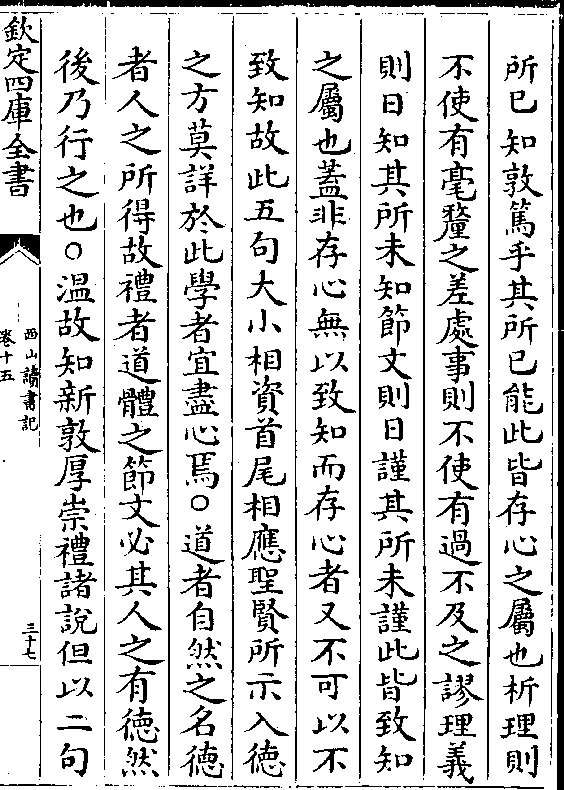 所已知敦篤乎其所已能此皆存心之屬也析理則
不使有毫釐之差處事則不使有過不及之謬理義
則日知其所未知節文則日謹其所未謹此皆致知
之屬也蓋非存心無以致知而存心者又不可以不
致知故此五句大小相資首尾相應聖賢所示入德
之方莫詳於此學者宜盡心焉○道者自然之名德
者人之所得故禮者道體之節文必其人之有德然
後乃行之也○溫故知新敦厚崇禮諸說但以二句
欽定四庫全書
西山讀書記
卷十五
三十七